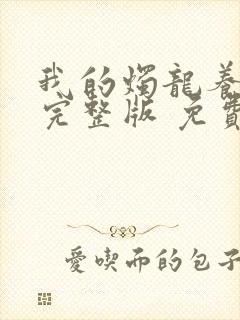 我的燭龍養
完整版 免費
愛喫而的包子